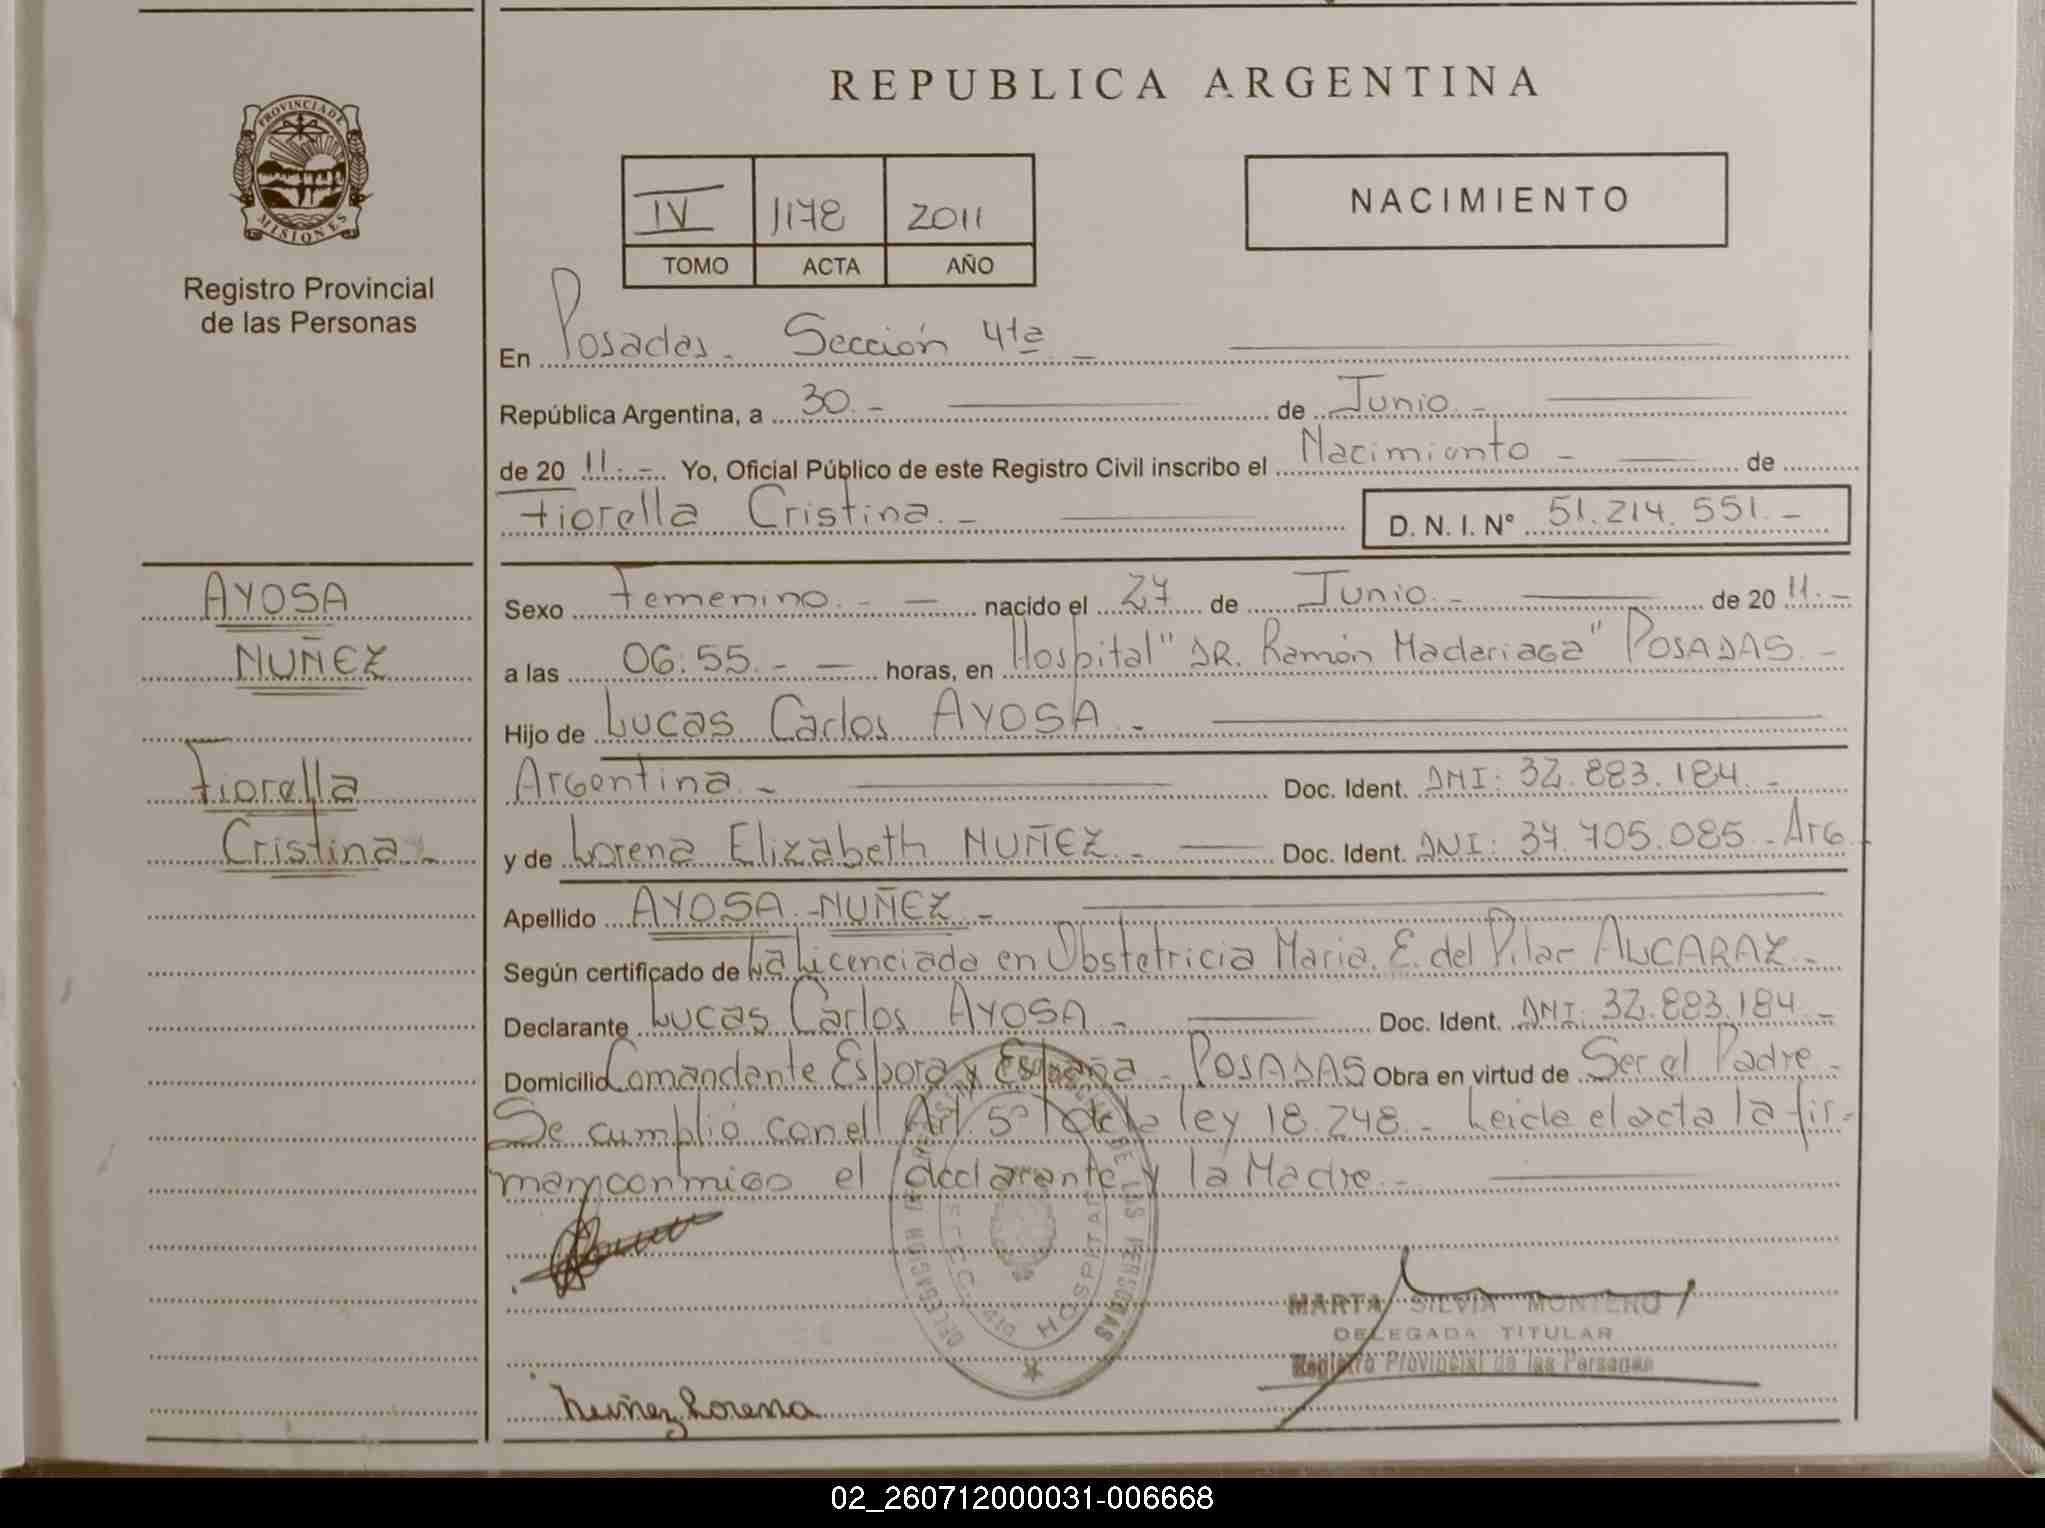 REPUBLICA ARGENTINA
PROVINCIA DE
MISIONES
Registro Provincial
de las Personas
IV 1178 2011
TOMO ACTA AÑO
NACIMIENTO
En Posadas - Sección 4ta -
República Argentina, a 30 - de Junio -
de 20 11 - Yo, Oficial Público de este Registro Civil inscribo el Nacimiento - de
Fiorella Cristina - D. N. I. Nº 51.214.551 -
AYOSA
NUÑEZ
Fiorella
Cristina -
Sexo Femenino - - nacido el 27 de Junio - de 20 11 -
a las 06:55 - - horas, en Hospital "DR. Ramón Madariaga" POSADAS -
Hijo de Lucas Carlos AYOSA -
Argentina - Doc. Ident. DNI: 32.883.184 -
y de Lorena Elizabeth NUÑEZ - Doc. Ident. DNI: 37.705.085 - Arg
Apellido AYOSA - NUÑEZ -
Según certificado de La Licenciada en Obstetricia Maria. E. del Pilar ALCARAZ -
Declarante Lucas Carlos AYOSA - Doc. Ident. DNI: 32.883.184 -
Domicilio Comandante Espora y España - POSADAS Obra en virtud de Ser el Padre -
Se cumplió con el Art. 5º de la ley 18.248 - Leida el acta la fir-
man conmigo el declarante y la Madre -
DE LAS PERSONAS
HOSPITAL
MARTA SILVIA MONTERO
DELEGADA TITULAR
Registro Provincial de las Personas
Nuñez Lorena
02_260712000031-006668